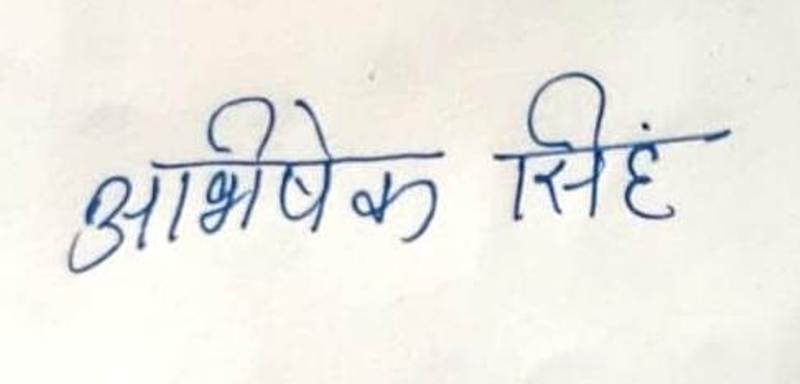 अभिषेक सिंहं